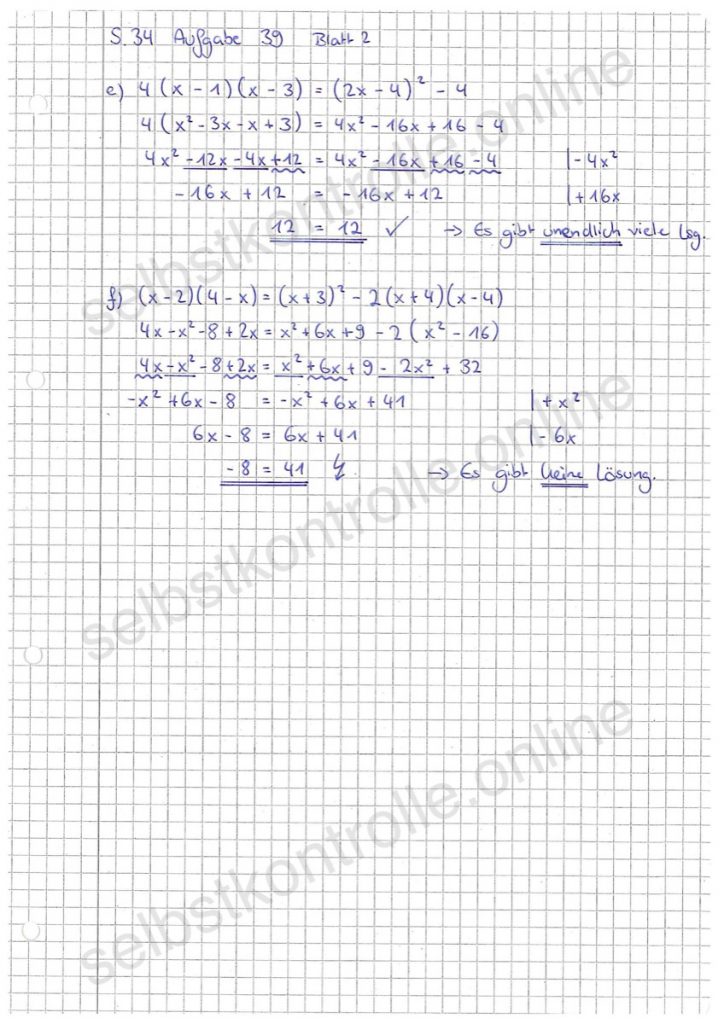 S. 34 Aufgabe 39 Blatt 2
e) 4(x - 1)(x - 3) = (2x - 4)² - 4
4(x² - 3x - x + 3) = 4x² - 16x + 16 - 4
4x² - 12x - 4x + 12 = 4x² - 16x + 16 - 4 | - 4x²
- 16x + 12 = - 16x + 12 | + 16x
12 = 12 ✓ → Es gibt unendlich viele Lsg.
f) (x - 2)(4 - x) = (x + 3)² - 2(x + 4)(x - 4)
4x - x² - 8 + 2x = x² + 6x + 9 - 2(x² - 16)
4x - x² - 8 + 2x = x² + 6x + 9 - 2x² + 32
-x² + 6x - 8 = -x² + 6x + 41 | + x²
6x - 8 = 6x + 41 | - 6x
- 8 = 41 ↯ → Es gibt keine Lösung.
selbstkontrolle.online
selbstkontrolle.online
selbstkontrolle.online